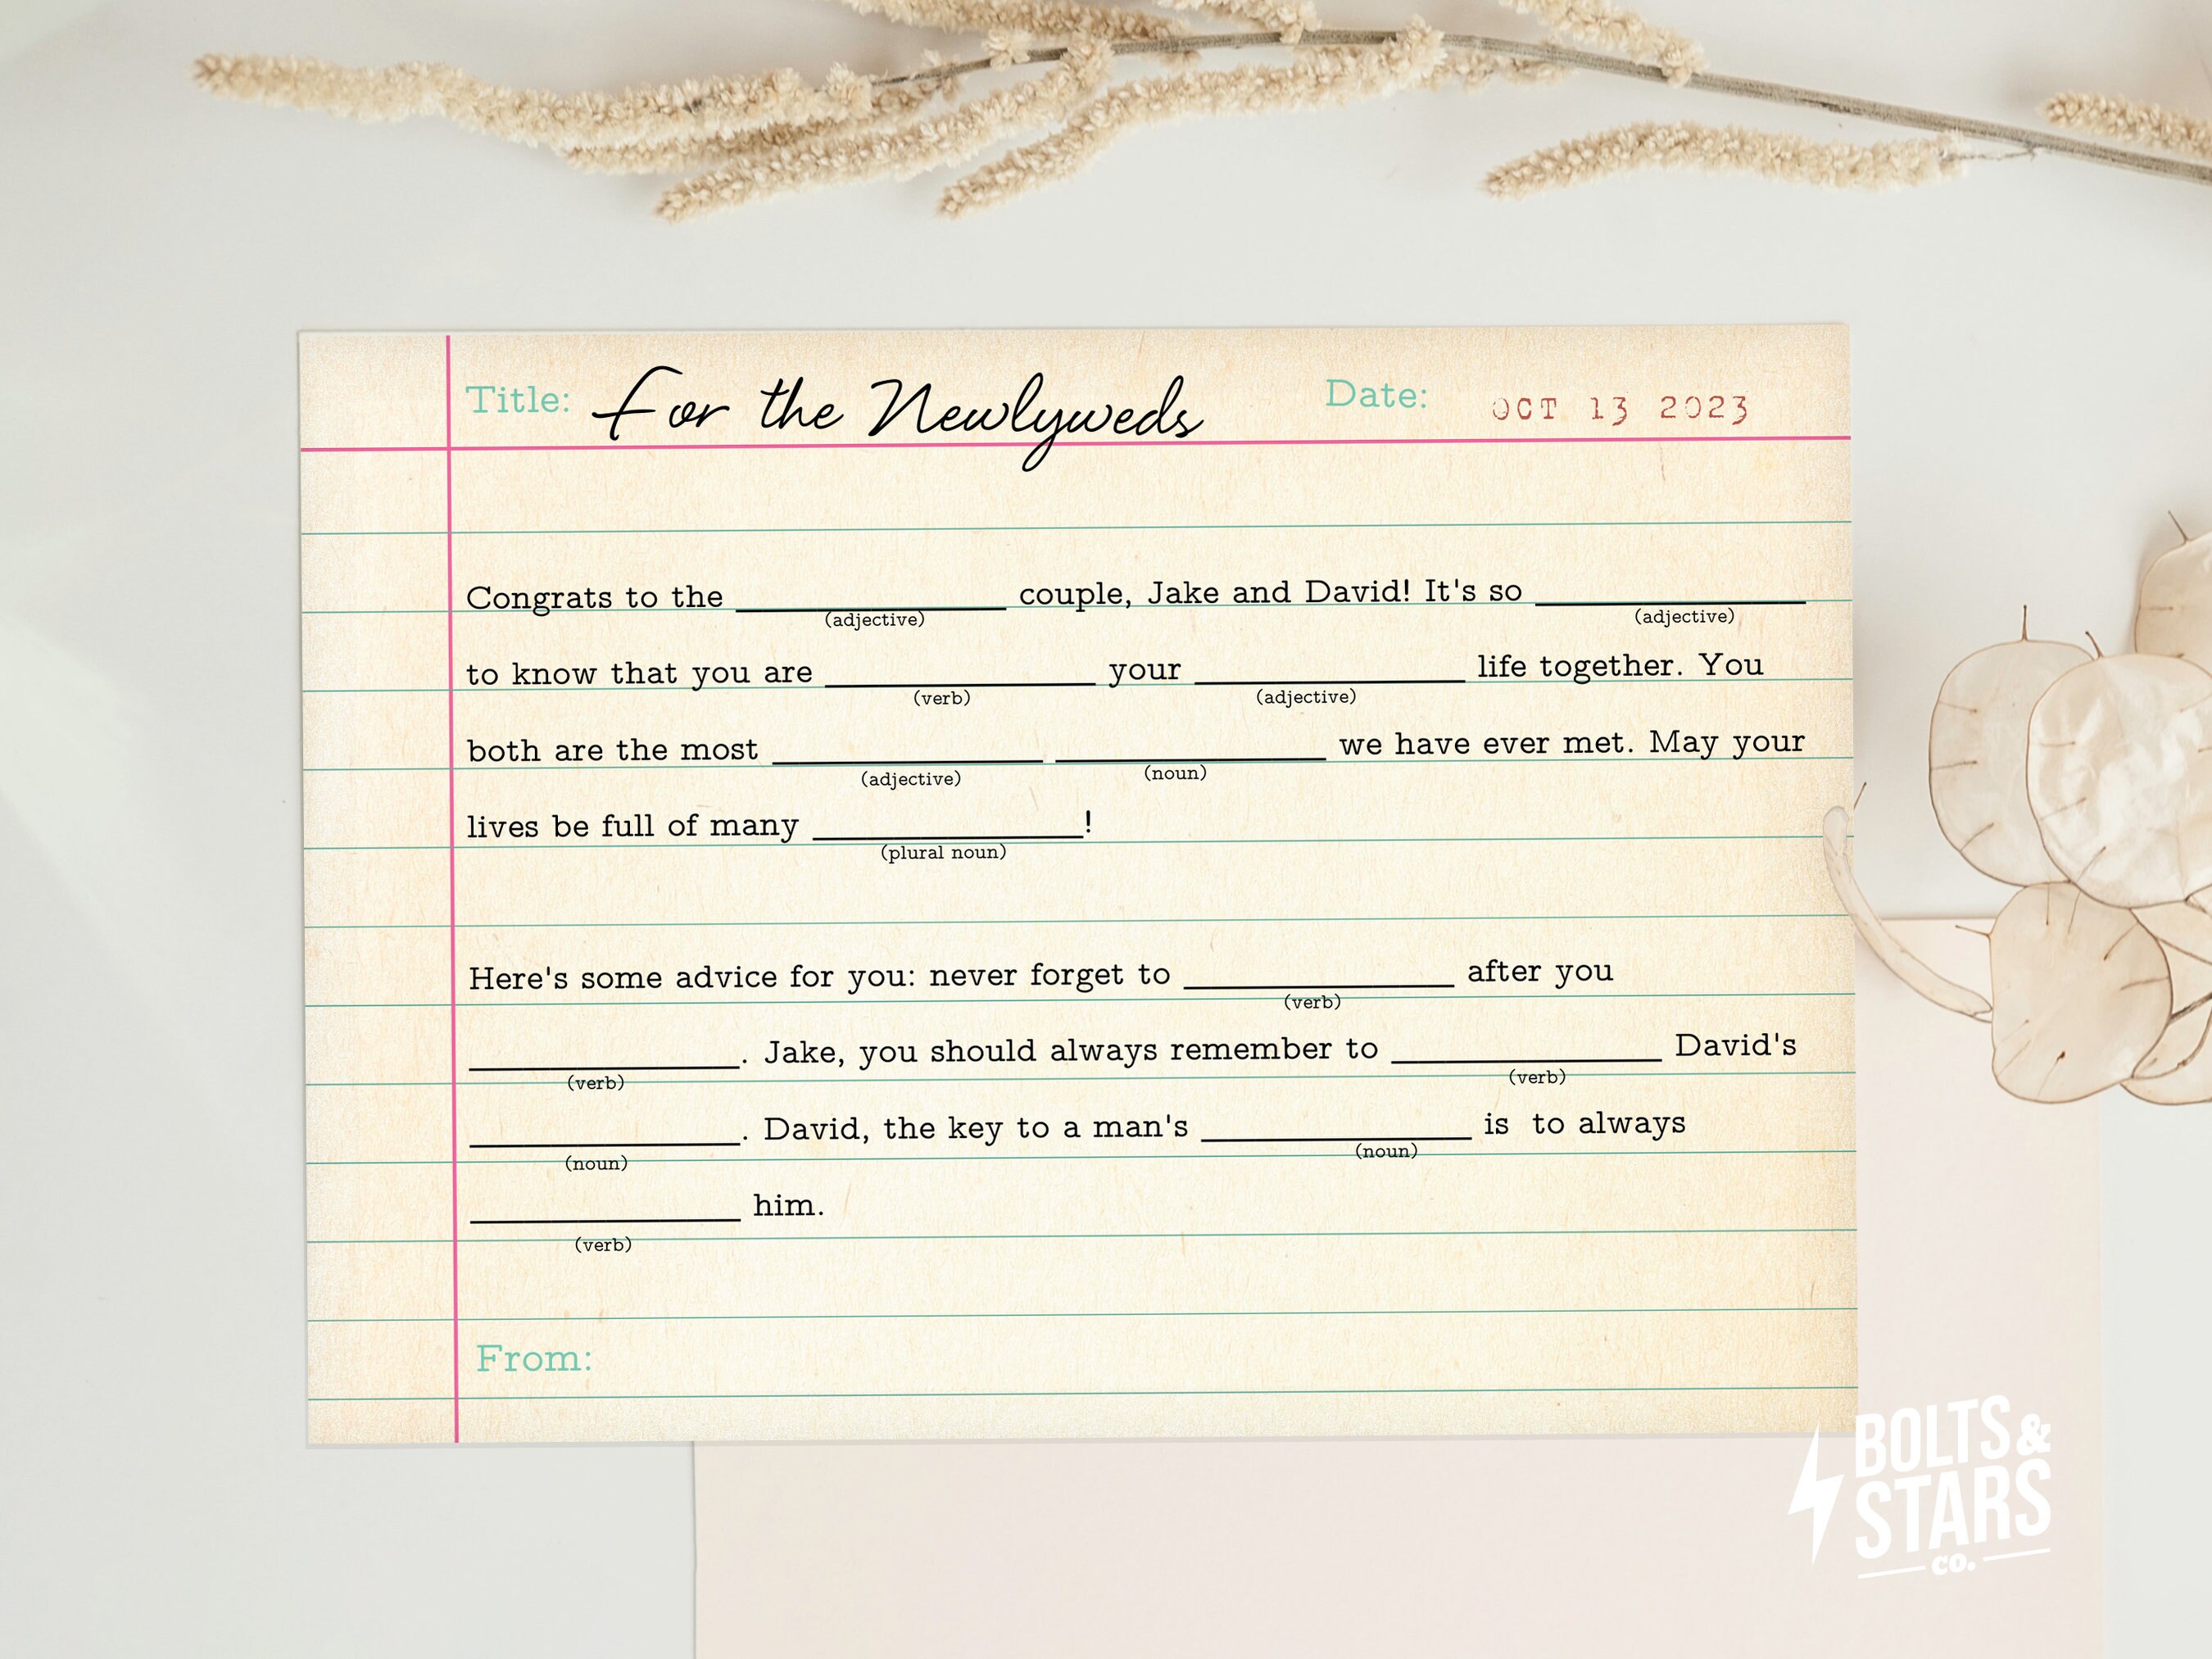 Title: For the Newlyweds Date: OCT 13 2023
Congrats to the ____________ couple, Jake and David! It's so ____________
(adjective) (adjective)
to know that you are ____________ your ____________ life together. You
(verb) (adjective)
both are the most ____________ ____________ we have ever met. May your
(adjective) (noun)
lives be full of many ____________!
(plural noun)
Here's some advice for you: never forget to ____________ after you
(verb)
____________. Jake, you should always remember to ____________ David's
(verb) (verb)
____________. David, the key to a man's ____________ is to always
(noun) (noun)
____________ him.
(verb)
From:
BOLTS &
STARS
CO.